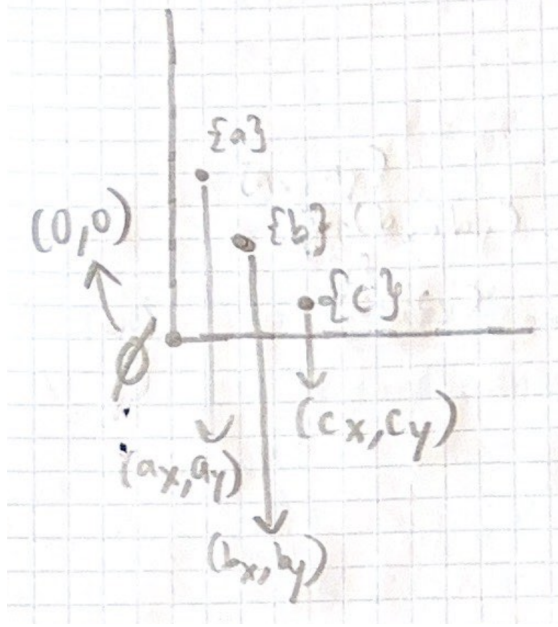 {a}
(0,0)
{b}
{c}
∅
(cx,cy)
(ax,ay)
(bx,by)